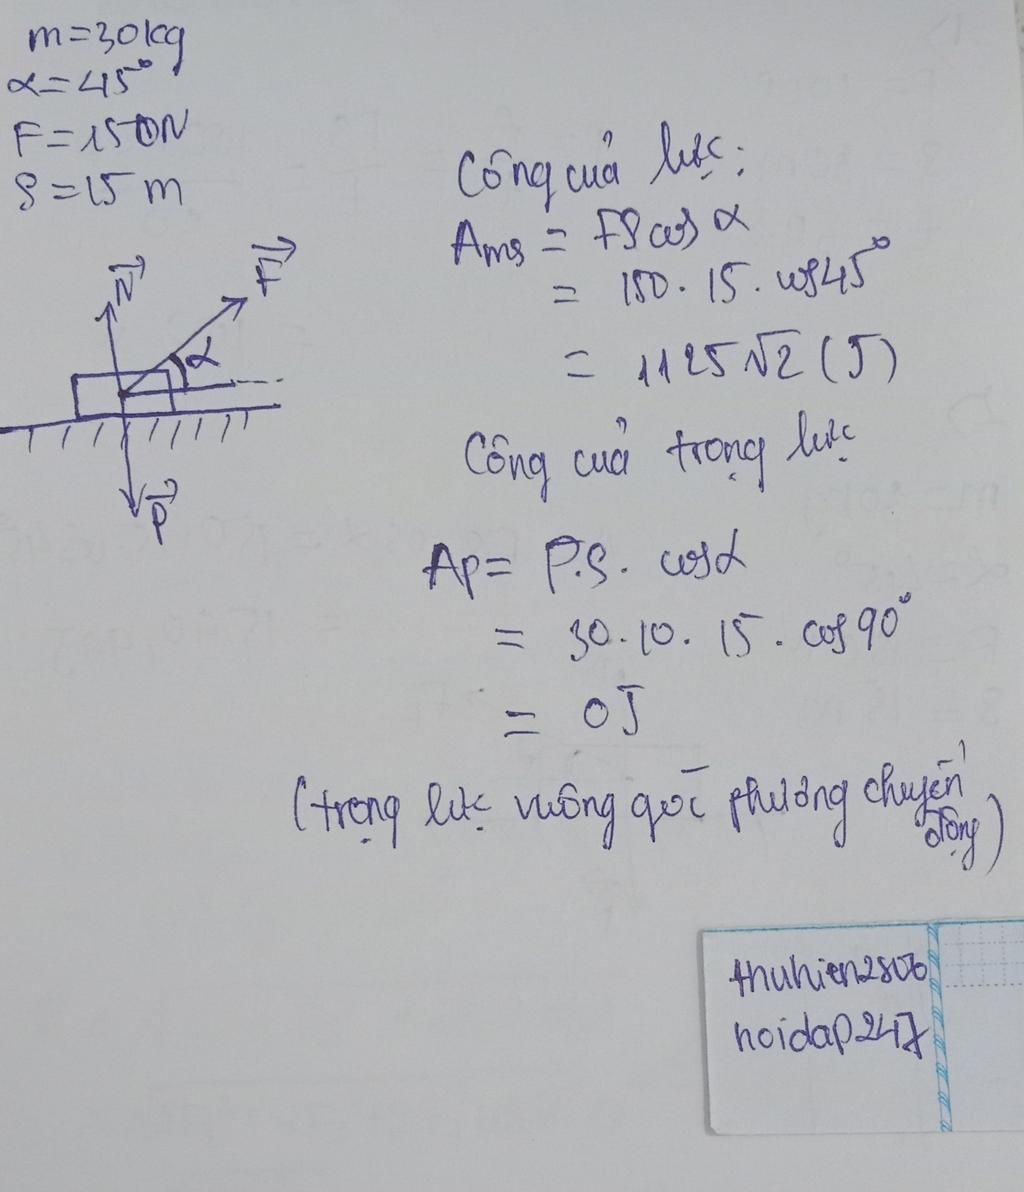 m=30kg
α=45°
F=150N
S=15 m
Công của lực:
Ams = FS cos α
= 150. 15. cos45°
= 1125√2 (J)
N
F
α
P
Công của trọng lực
Ap= P.S. cosα
= 30.10. 15. cos 90°
= 0J
(trọng lực vuông góc phương chuyển
động)
thuhien2806
hoidap247